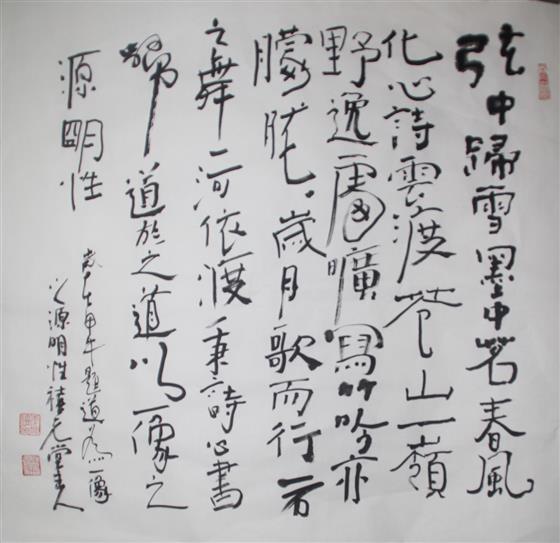 弦中歸雪墨中茗春風
化心詩雲渡茫山一嶺
野逸庸曠寫竹吟亦
朦朧歲月歌而行若
之舞二河依渡秉詩心書
歸道於之道以像之
源明性
歲在甲午題道為一像
之源明性禧元堂主人